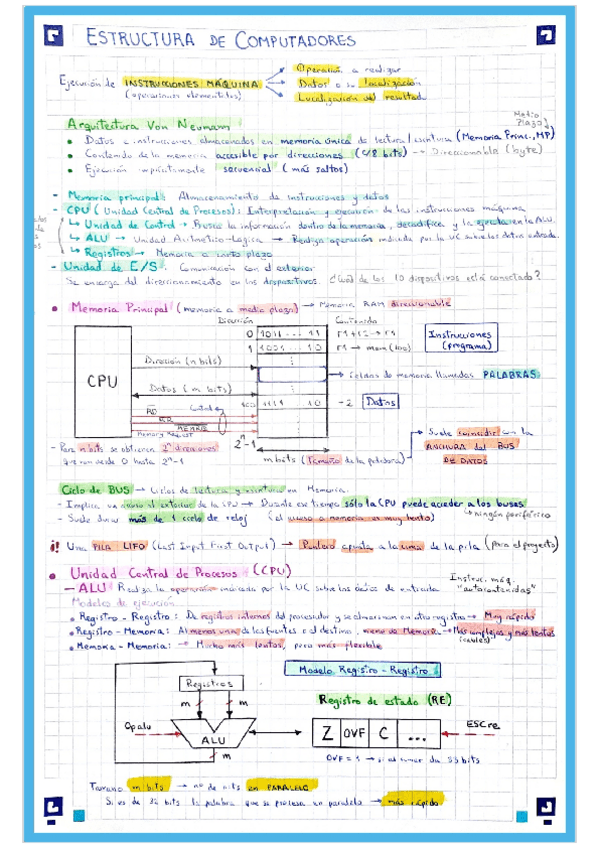 ESTRUCTURA DE COMPUTADORES
Ejecución de INSTRUCCIONES MÁQUINA
(operaciones elementales)
Operación a realizar
Datos o su localización
Localización del resultado
Medio Plazo
Arquitectura Von Neumann
• Datos e instrucciones almacenados en memoria única de lectura/escritura (Memoria Princ., MP)
• Contenido de la memoria accesible por direcciones (48 bits) → Direccionable (byte)
• Ejecución implícitamente secuencial (más saltos)
- Memoria principal: Almacenamiento de instrucciones y datos
- CPU (Unidad Central de Procesos): Interpretación y ejecución de las instrucciones máquina
↳ Unidad de Control → Busca la información dentro de la memoria, decodifica y la ejecuta en la ALU.
↳ ALU → Unidad Aritmético-Lógica → Realiza operación indicada por la UC sobre los datos entrada.
↳ Registros → Memoria a corto plazo
- Unidad de E/S: Comunicación con el exterior
Se encarga del direccionamiento en los dispositivos ¿Cuál de los 10 dispositivos está conectado?
• Memoria Principal (memoria a medio plazo) → Memoria RAM direccionable
Dirección Contenido
0 1011 ... 11 r1+r2→r1
1 1001 ... 10 r1 → mem(100)
Instrucciones
(programa)
CPU
Dirección (n bits)
Celdas de memoria llamadas PALABRAS
Datos (m bits)
100 1111 10 -2 Datos
RD
WR
MEMRQ
Memory Request
2ⁿ-1
- Para n bits se obtienen 2ⁿ direcciones
que van desde 0 hasta 2ⁿ-1
m bits (Tamaño de la palabra)
Suele coincidir con la
ANCHURA del BUS
DE DATOS
Ciclo de BUS → Ciclos de lectura y escritura en Memoria.
- Implica un acceso al exterior de la CPU → Durante ese tiempo sólo la CPU puede acceder a los buses
↳ ningún periférico
- Suele durar más de 1 ciclo de reloj (el acceso a memoria es muy lento)
¡! Una PILA LIFO (Last Input First Output) → Puntero apunta a la cima de la pila (para el proyecto)
• Unidad Central de Procesos (CPU)
Instruc. máq.
"autocontenidas"
— ALU Realiza la operación indicada por la UC sobre los datos de entrada.
Modelos de ejecución
• Registro - Registro: De registros internos del procesador y se almacenan en otro registro → Muy rápido
• Registro - Memoria: Al menos una de las fuentes o el destino, viene de Memoria → Más complejas y más lentas
• Memoria - Memoria: → Mucho más lentas, pero más flexible
Modelo Registro - Registro
Registros
m m
Opalu
ALU
m
Registro de estado (RE)
Z OVF C ...
ESCre
OVF = 1 → si al sumar da 33 bits
Tamaño m bits → nº de bits en PARALELO
Si es de 32 bits la palabra que se procesa en paralelo → más rápido